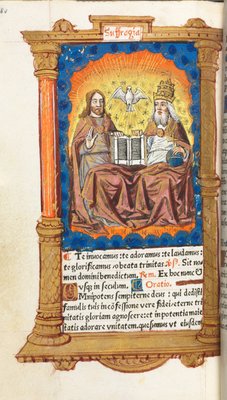 Suffragia
¶ Te inuocamus:te adoramus:te laudamus:
te glorificamus o beata trinitas. Sit no
men domini benedictum. Rem. Ex hoc nunc
vsq; in seculum. Oratio.
Omnipotens sempiterne deus: qui dedisti
famulis tuis in cōfessione vere fidei:eterne tri
nitatis gloriam agnoscere:et in potentia maie
statis adorare vnitatem.quesumus vt eiusdem